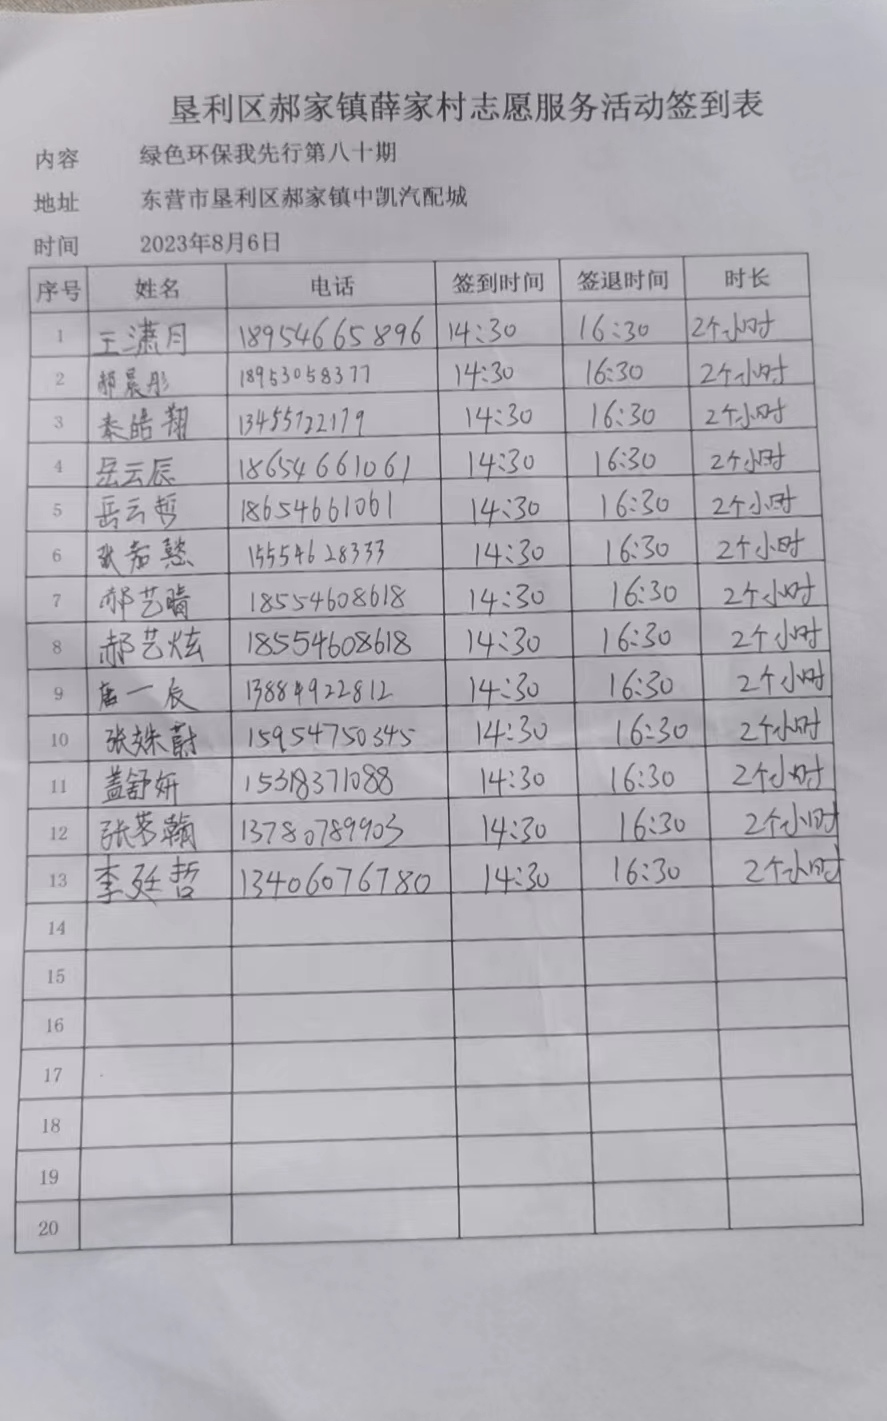 垦利区郝家镇薛家村志愿服务活动签到表
内容 绿色环保我先行第八十期
地址 东营市垦利区郝家镇中凯汽配城
时间 2023年8月6日
序号 姓名 电话 签到时间 签退时间 时长
1 王潇月 18954665896 14:30 16:30 2个小时
2 郝晨彤 18953058377 14:30 16:30 2个小时
3 秦皓翔 13455722179 14:30 16:30 2个小时
4 岳云辰 18654661061 14:30 16:30 2个小时
5 岳云哲 18654661061 14:30 16:30 2个小时
6 15554628333 14:30 16:30 2个小时
7 郝艺晴 18554608618 14:30 16:30 2个小时
8 郝艺炫 18554608618 14:30 16:30 2个小时
9 唐一辰 13884922812 14:30 16:30 2个小时
10 张姝蔚 15954750345 14:30 16:30 2个小时
11 盖舒妍 15318371088 14:30 16:30 2个小时
12 13780789903 14:30 16:30 2个小时
13 李廷哲 13406076780 14:30 16:30 2个小时
14
15
16
17
18
19
20